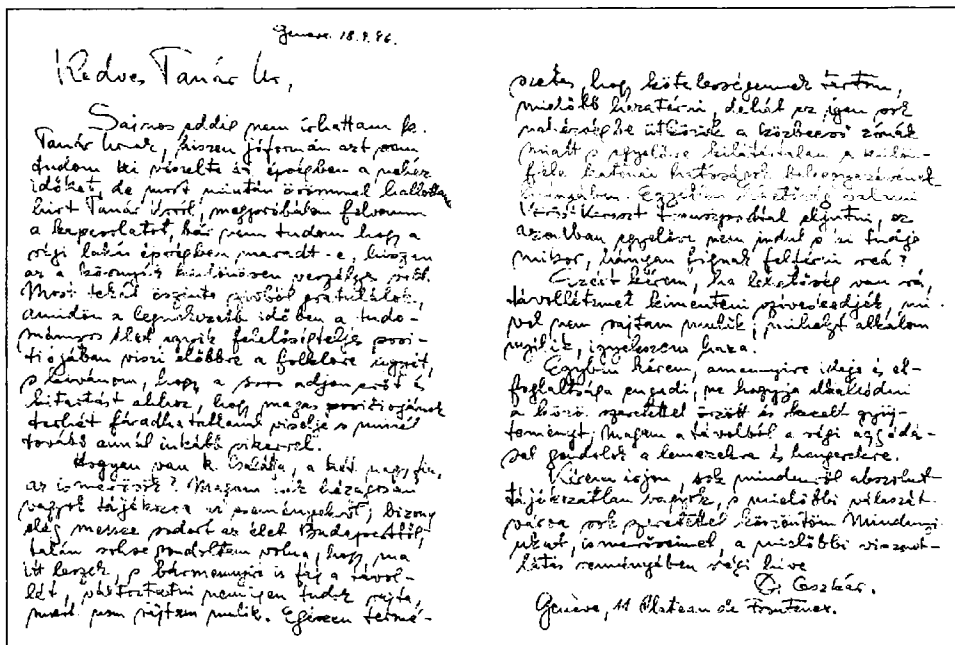 Genève. 18.9.46.
Kedves Tanár Úr,
Sajnos eddig nem írhattam k.
Tanár Úrnak, hiszen jóformán azt sem
tudom ki vészelte át épségben a nehéz
időket, de most miután örömmel hallottam
hírt Tanár Úrról, megpróbálom felvenni
a kapcsolatot, bár nem tudom hogy a
régi lakás épségben maradt-e, hiszen
az a környék különösen veszélyes volt.
Most tehát őszinte szívből gratulálok,
amidőn a legnehezebb időben a tudo-
mányos élet egyik felelősségteljes posi-
tiójában viszi előbbre a folklore ügyét,
s kívánom, hogy a sors adjon erőt és
kitartást ahhoz, hogy magas positiojának
terhét fáradhatatlanul viselje s minél
tovább annál inkább sikerrel.
Hogyan van k. Családja, a két nagy fiu,
az ismerősök? Magam csak hézagosan
vagyok tájékozva az eseményekről, bizony
elég messze sodort az élet Budapesttől,
talán sohse gondoltam volna, hogy ma
itt leszek, s bármennyire is fáj a távol-
lét, változtatni nem igen tudok rajta,
mert nem rajtam mulik. Egészen termé-
szetes, hogy kötelességemnek tartom,
mielőbb hazatérni, dehát ez igen sok
nehézségbe ütközik a közbeeső zónák
miatt s egyelőre kilátástalan a külön-
féle katonai hatóságok
hiányában. Egyetlen lehetőség valami
Vörös Kereszt transzporttal eljutni, ez
azonban egyelőre nem indul s ki tudja
mikor, hányan fognak felférni reá?
Ezért kérem, ha lehetőség van rá,
távollétemet kimenteni sziveskedjék, mi-
vel nem rajtam mulik, mihelyt alkalom
nyílik, igyekszem haza.
Egyben kérem, amennyire ideje és el-
foglaltsága engedi, ne hagyja elkallódni
a közös szeretettel őrzött és kezelt gyűj-
teményt, magam a távolból a régi aggódás-
sal gondolok a lemezekre és hengerekre.
Kérem írjon, sok mindenről abszolut
tájékozatlan vagyok, s mielőbbi válaszát
várva sok szeretettel köszöntöm Mindnyáju-
kat, ismerőseimet, a mielőbbi viszont-
látás reményében régi híve
Oszkár.
Genève, 11 Plateau de Frontenex.